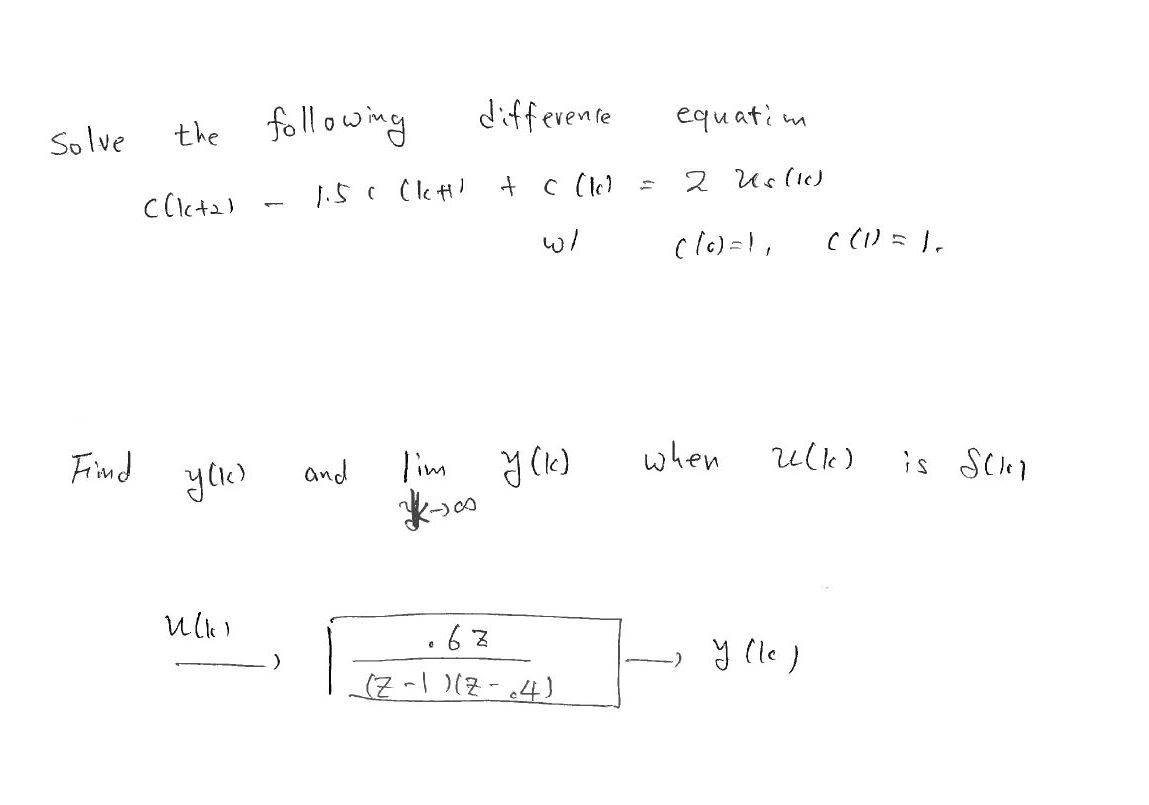 Solve the following difference equation
c(k+2) - 1.5 c(k+1) + c(k) = 2 us(k)
w/ c(0)=1, c(1)=1.
Find y(k) and lim y(k) when u(k) is δ(k)
k→∞
u(k) → .6z → y(k)
(z-1)(z-.4)